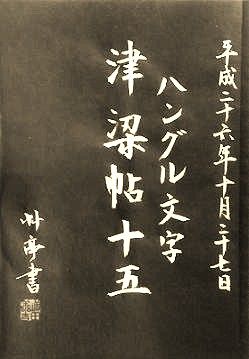 平成二十六年十月二十七日
ハングル文字
津梁帖十五
艸亭書